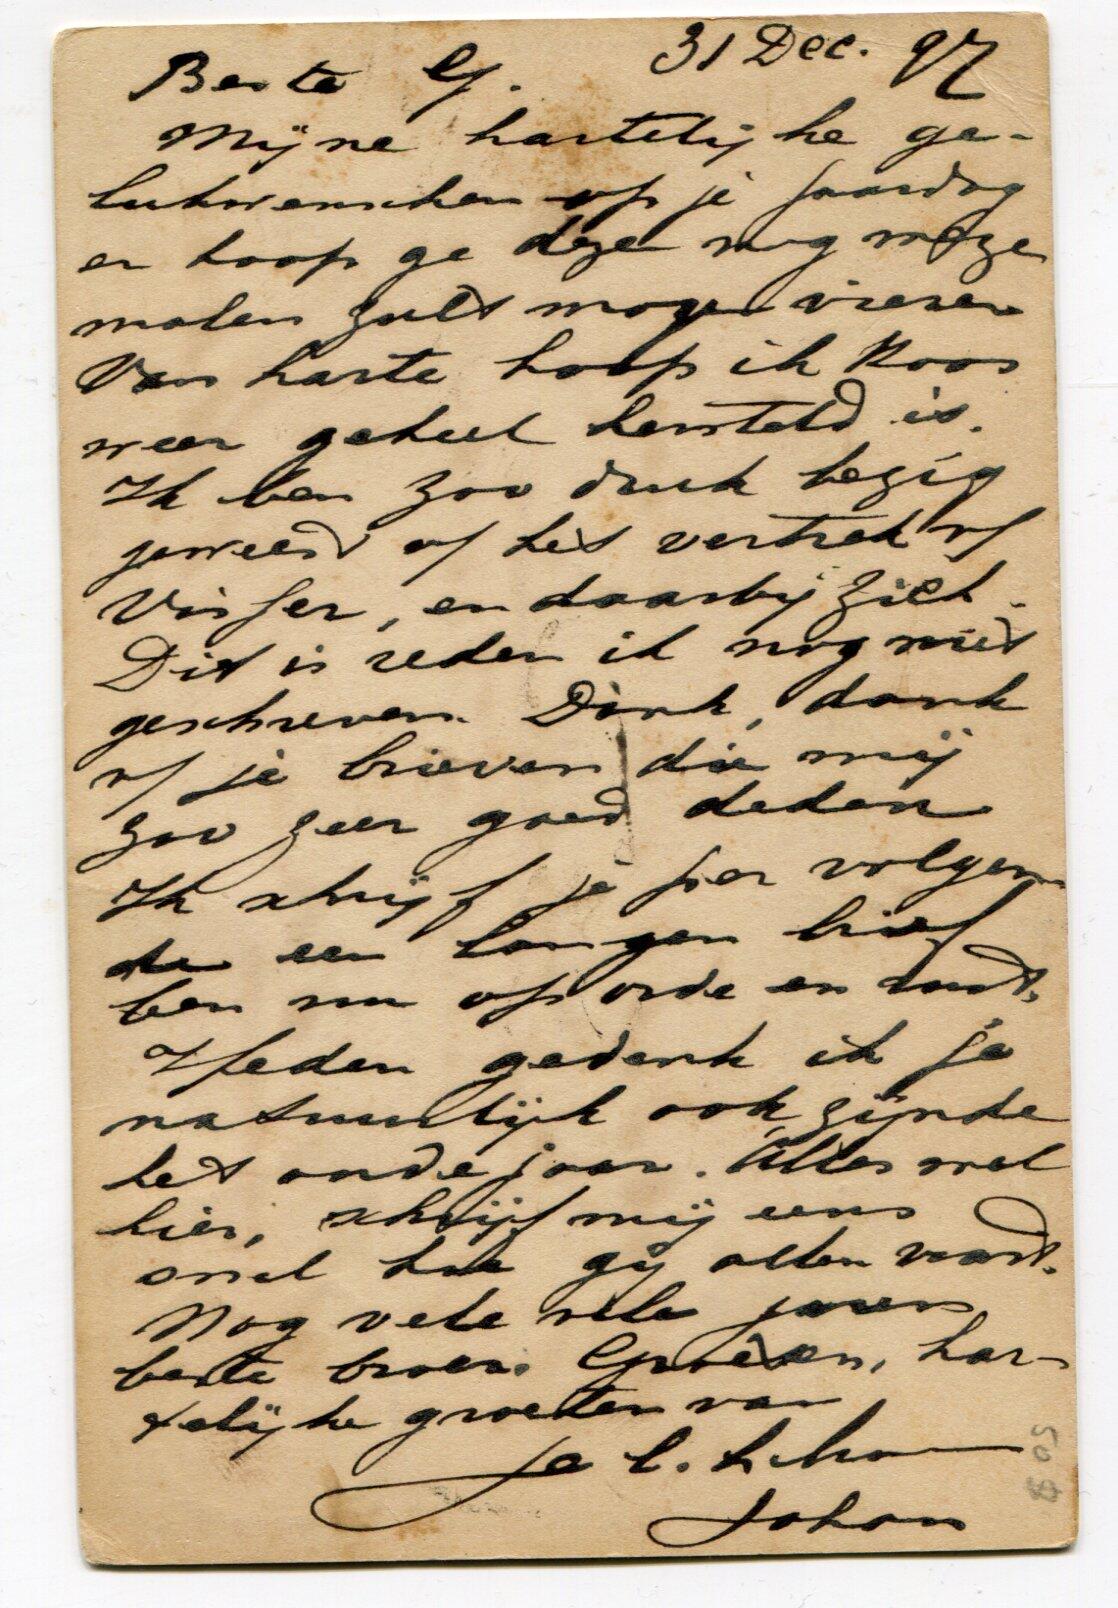 31 Dec. 97
Beste G.
Mijne hartelijke ge-
lukwenschen op je jaardag
en hoop ge deze nog vele
malen zult mogen vieren
Van harte hoop ik Koos
weer geheel hersteld is.
Ik ben zoo druk bezig
geweest o/ het vertrek v/
Visser, en daarbij ziek.
Dit is reden ik nog niet
geschreven. Dank, dank
v/ je brieven die mij
zoo zeer goed deden
Ik schrijf je per volgen-
de een langen brief
ben nu op orde en rust.
Heden gedenk ik je
natuurlijk ook zijnde
het oude jaar. Alles wel
hier, schrijf mij eens
snel hoe gij allen vaart.
Nog vele vele jaren
beste broer. Groeten, har-
telijke groeten van
je l.
Johan